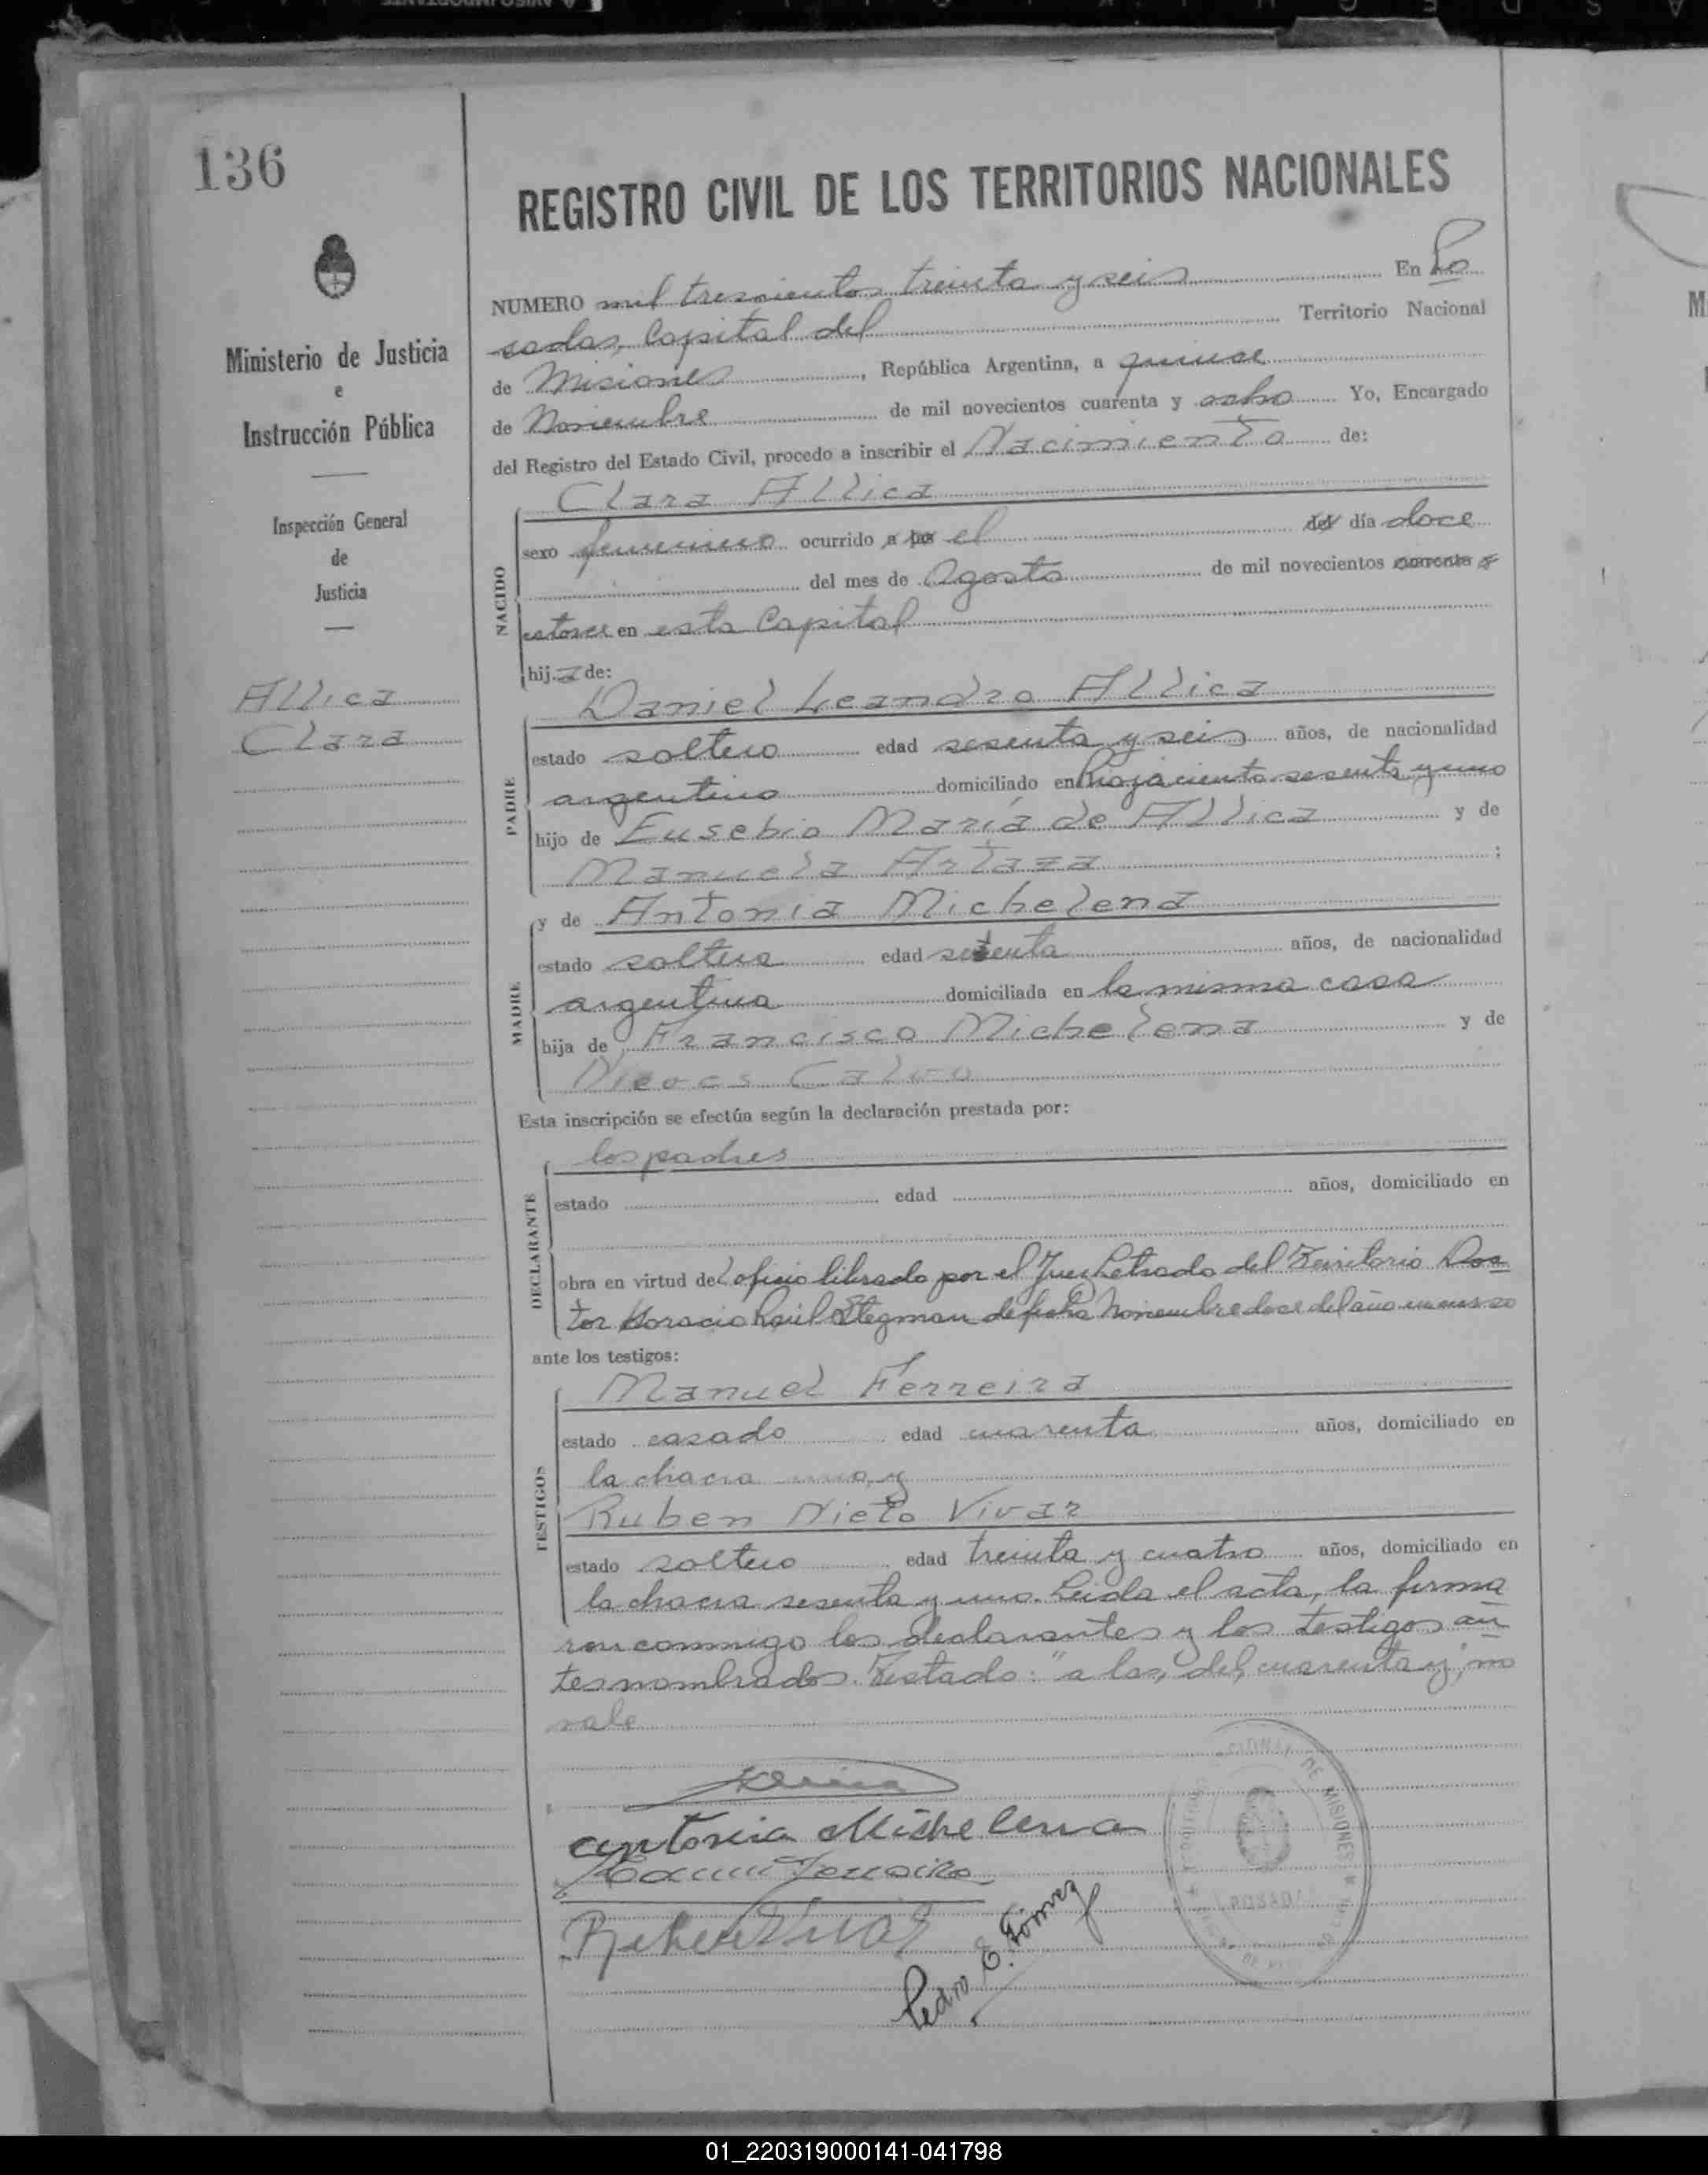 136
REGISTRO CIVIL DE LOS TERRITORIOS NACIONALES
Ministerio de Justicia
e
Instrucción Pública
Inspección General
de
Justicia
Allica
Clara
NUMERO mil trescientos treinta y seis En Po
sadas, Capital del Territorio Nacional
de Misiones, República Argentina, a quince
de Noviembre de mil novecientos cuarenta y ocho Yo, Encargado
del Registro del Estado Civil, procedo a inscribir el Nacimiento de:
NACIDO
Clara Allica
sexo femenino ocurrido a las el del día doce
del mes de Agosto de mil novecientos cuarenta y
catorce en esta Capital
hija de:
PADRE
Daniel Leandro Allica
estado soltero edad sesenta y seis años, de nacionalidad
argentino domiciliado en Rioja ciento sesenta y uno
hijo de Eusebio María de Allica y de
Manuela Artaza;
MADRE
y de Antonia Michelena
estado soltera edad setenta años, de nacionalidad
argentina domiciliada en la misma casa
hija de Francisco Michelena y de
Nieves Calvo
Esta inscripción se efectúa según la declaración prestada por:
DECLARANTE
los padres
estado edad años, domiciliado en
obra en virtud del oficio librado por el Juez Letrado del Territorio Doc
tor Horacio Raúl Stegman de fecha Noviembre doce del año en curso
ante los testigos:
TESTIGOS
Manuel Ferreira
estado casado edad cuarenta años, domiciliado en
la chacra uno, y
Ruben Nieto Vivar
estado soltero edad treinta y cuatro años, domiciliado en
la chacra sesenta y uno. Leida el acta, la firma
ron conmigo los declarantes y los testigos an
tes nombrados. Testado: "a las, del, cuarenta y, no
vale
Antonia Michelena
Ferreira
Ruben Vivar
Pedro E. Gómez
DE MISIONES
POSADAS
01_220319000141-041798